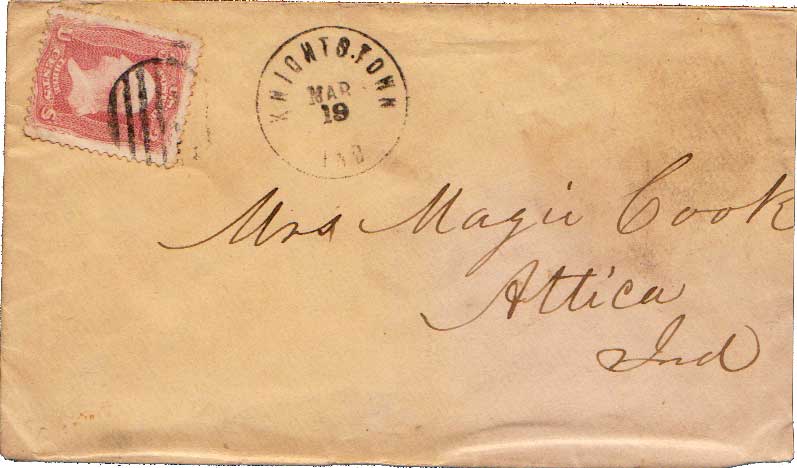 KNIGHTSTOWN
MAR
19
IND
Mrs Magie Cook
Attica
Ind